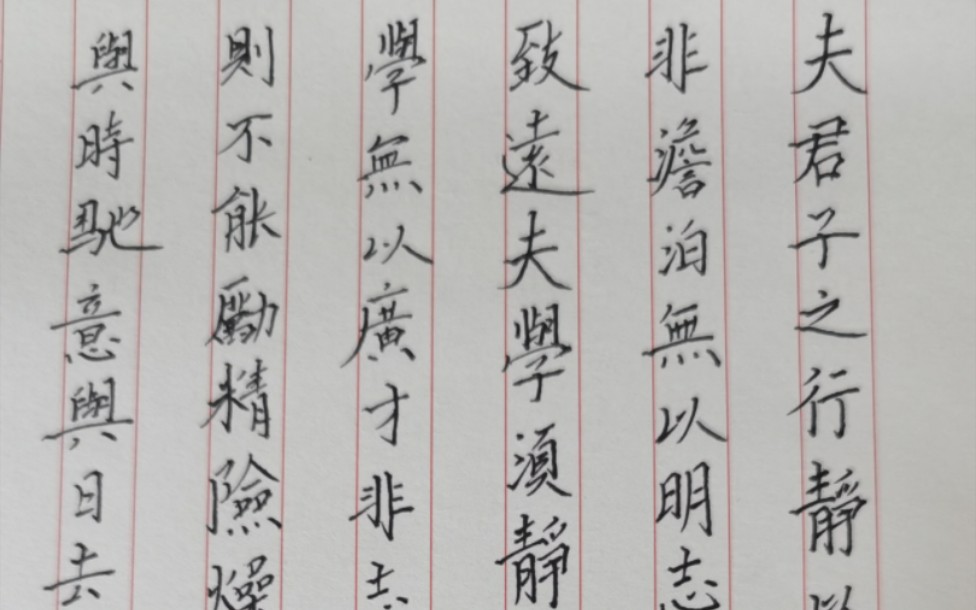 夫君子之行靜以
非澹泊無以明志
致遠夫學須靜
學無以廣才非志
則不能勵精險燥
與時馳意與日去